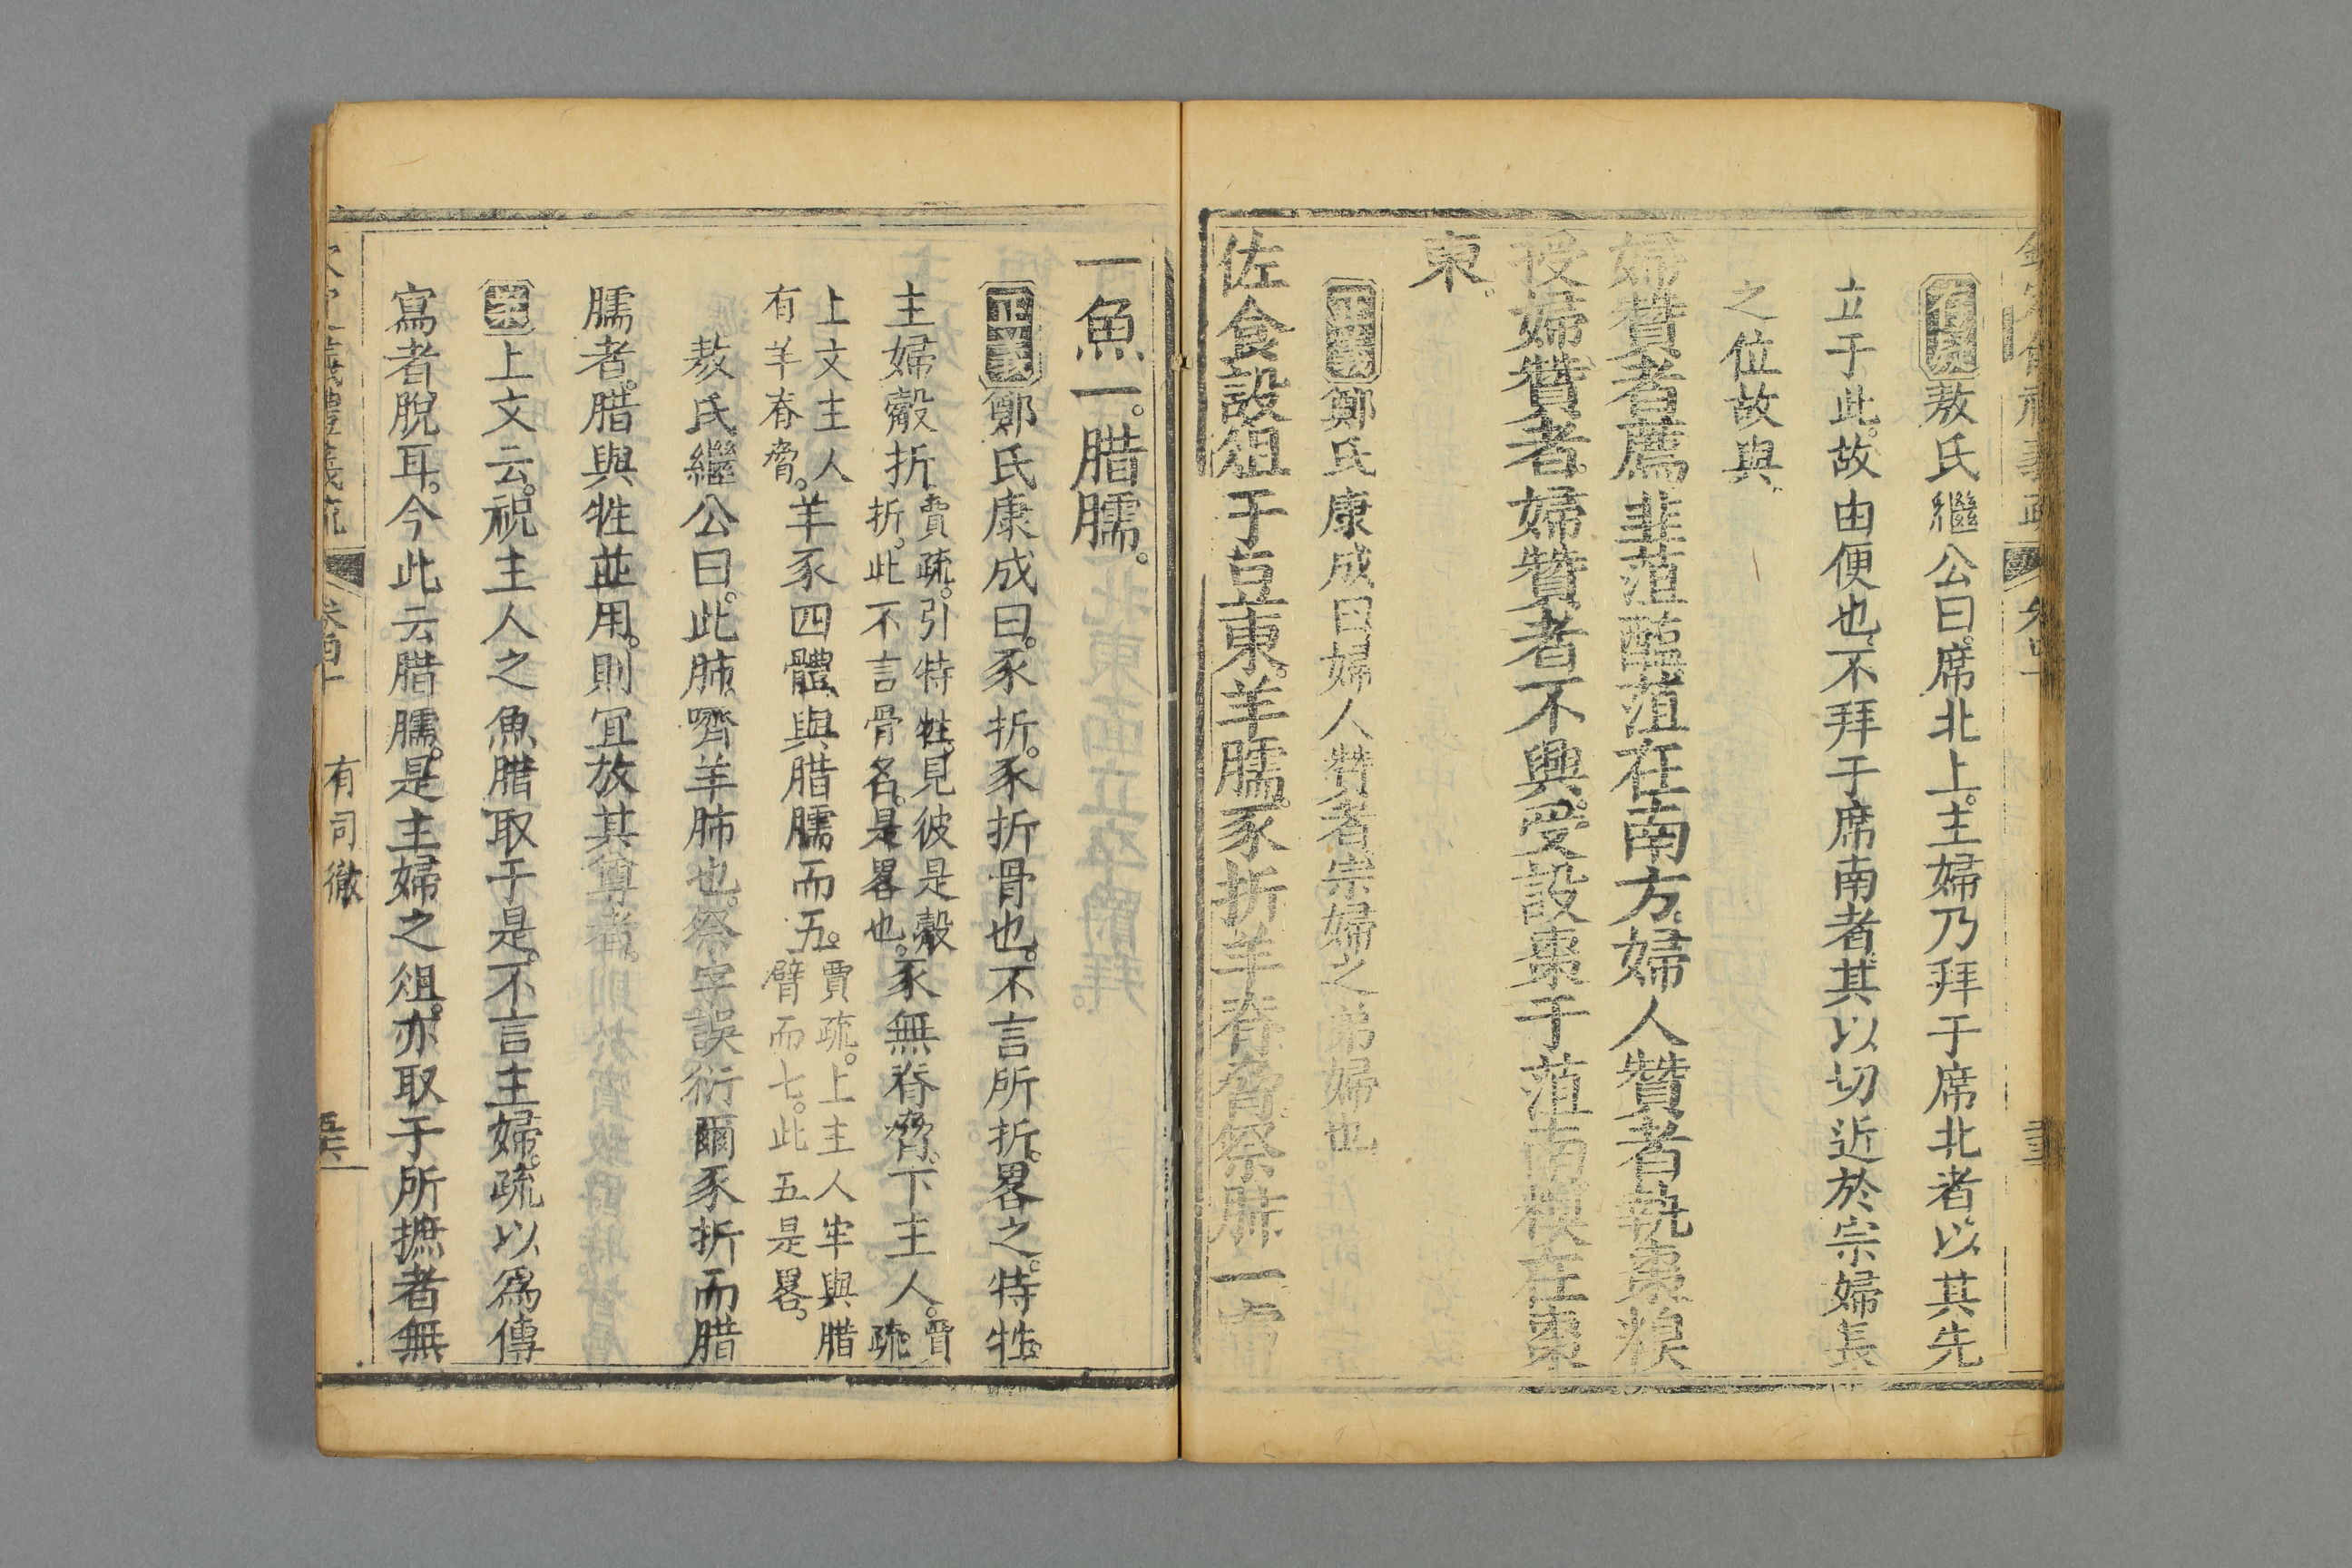 存疑敖氏繼公曰。席北上。主婦乃拜于席北者以其先
立于此。故由便也、不拜于席南者。其以切近於宗婦長
之位故與、
婦贊者薦韭菹醢菹在南方。婦人贊者執棗糗
授婦贊者。婦贊者不興。受設棗于菹南糗在棗
東。
正義鄭氏康成曰婦人贊者宗婦之弟婦也
佐食設俎于豆東。羊臑。豕折羊脊脅祭肺一膚
一魚一。腊臑。
正義鄭氏康成曰。豕折。豕折骨也。不言所折。畧之。特牲
主婦觳折。賈疏。引特牲。見彼是觳
折。此不言骨名。是畧也。豕無脊脅。下主人。賈疏。
上文主人
有羊脊脅。羊豕四體、與腊臑而五。賈疏。上主人牢與腊
臂而七。此五是畧。
敖氏繼公曰。此肺、嚌羊肺也。祭字誤衍爾豕折而腊
臑者。腊與牲並用。則宜放其尊者。
案上文云。祝主人之魚腊取于是。不言主婦。疏以爲傳
寫者脫耳。今此云腊臑。是主婦之俎。亦取于所摭者無
有司徹